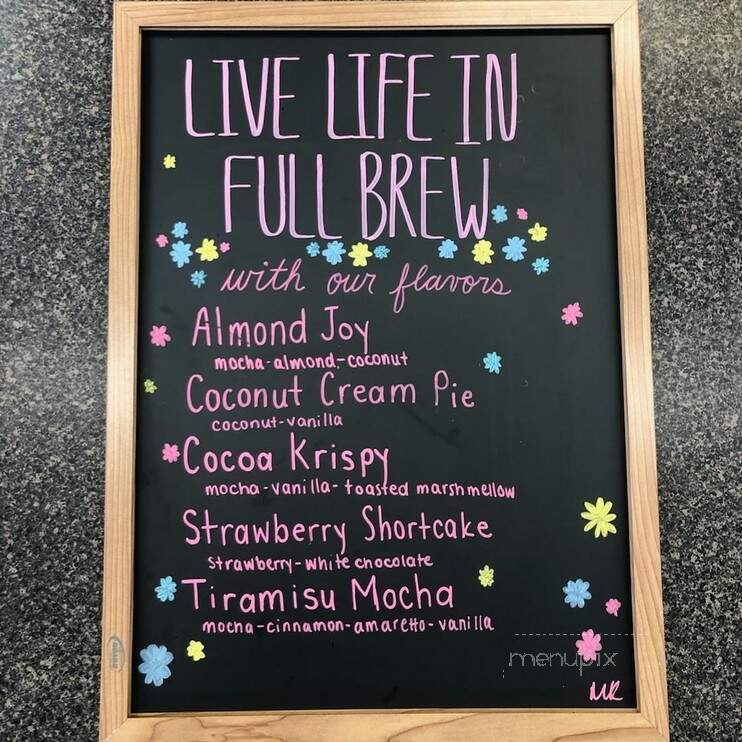 LIVE LIFE IN
FULL BREW
with our flavors
Almond Joy
mocha-almond-coconut
Coconut Cream Pie
coconut-vanilla
Cocoa Krispy
mocha-vanilla-toasted marshmellow
Strawberry Shortcake
strawberry-white chocolate
Tiramisu Mocha
mocha-cinnamon-amaretto-vanilla
menupix
MR